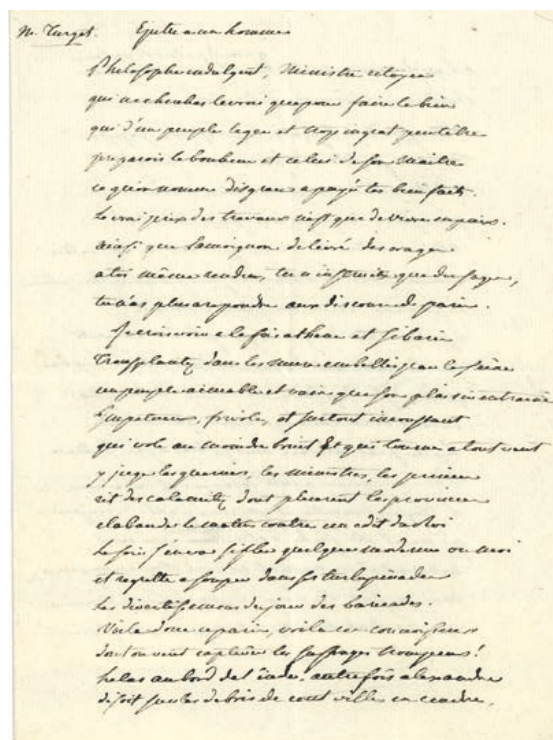 M. Turgot. Epitre a un homme
Philosophe indulgent, Ministre citoyen
qui ne cherchas le vrai que pour faire le bien
qui d'un peuple leger et trop ingrat peut être
preparois le bonheur et celui de son maitre
ce qu'on nomme disgrace a payé tes bienfaits.
Le vrai prix des travaux n'est que de vivre en paix.
ainsi que Lamoignon delivré des orages
a toi même rendu, tu n'instruits que des sages,
tu n'as plus a repondre aux discours de paris.
Je crois voir a la fois athene et sibaris
transplantez dans les murs embellis par la seine
un peuple aimable et vain que son plaisir entraine
Impetueux, frivole, et surtout inconstant
qui vole au moindre bruit et qui tourne a tout vent
y juge les guerriers, les ministres, les princes
rit des calamitez dont pleurent les provinces
clabaude le matin contre un edit du Roi
Le soir s'en va sifler quelque moderne ou moi
et regrette a souper dans ses turlupinades
Les divertissemens du jour des baricades.
Voila donc ce paris, voila ces connoisseurs
dont on veut captiver les suffrages trompeurs!
helas au bord de l'inde autrefois alexandre
disoit sur les debris de cent villes en cendre,